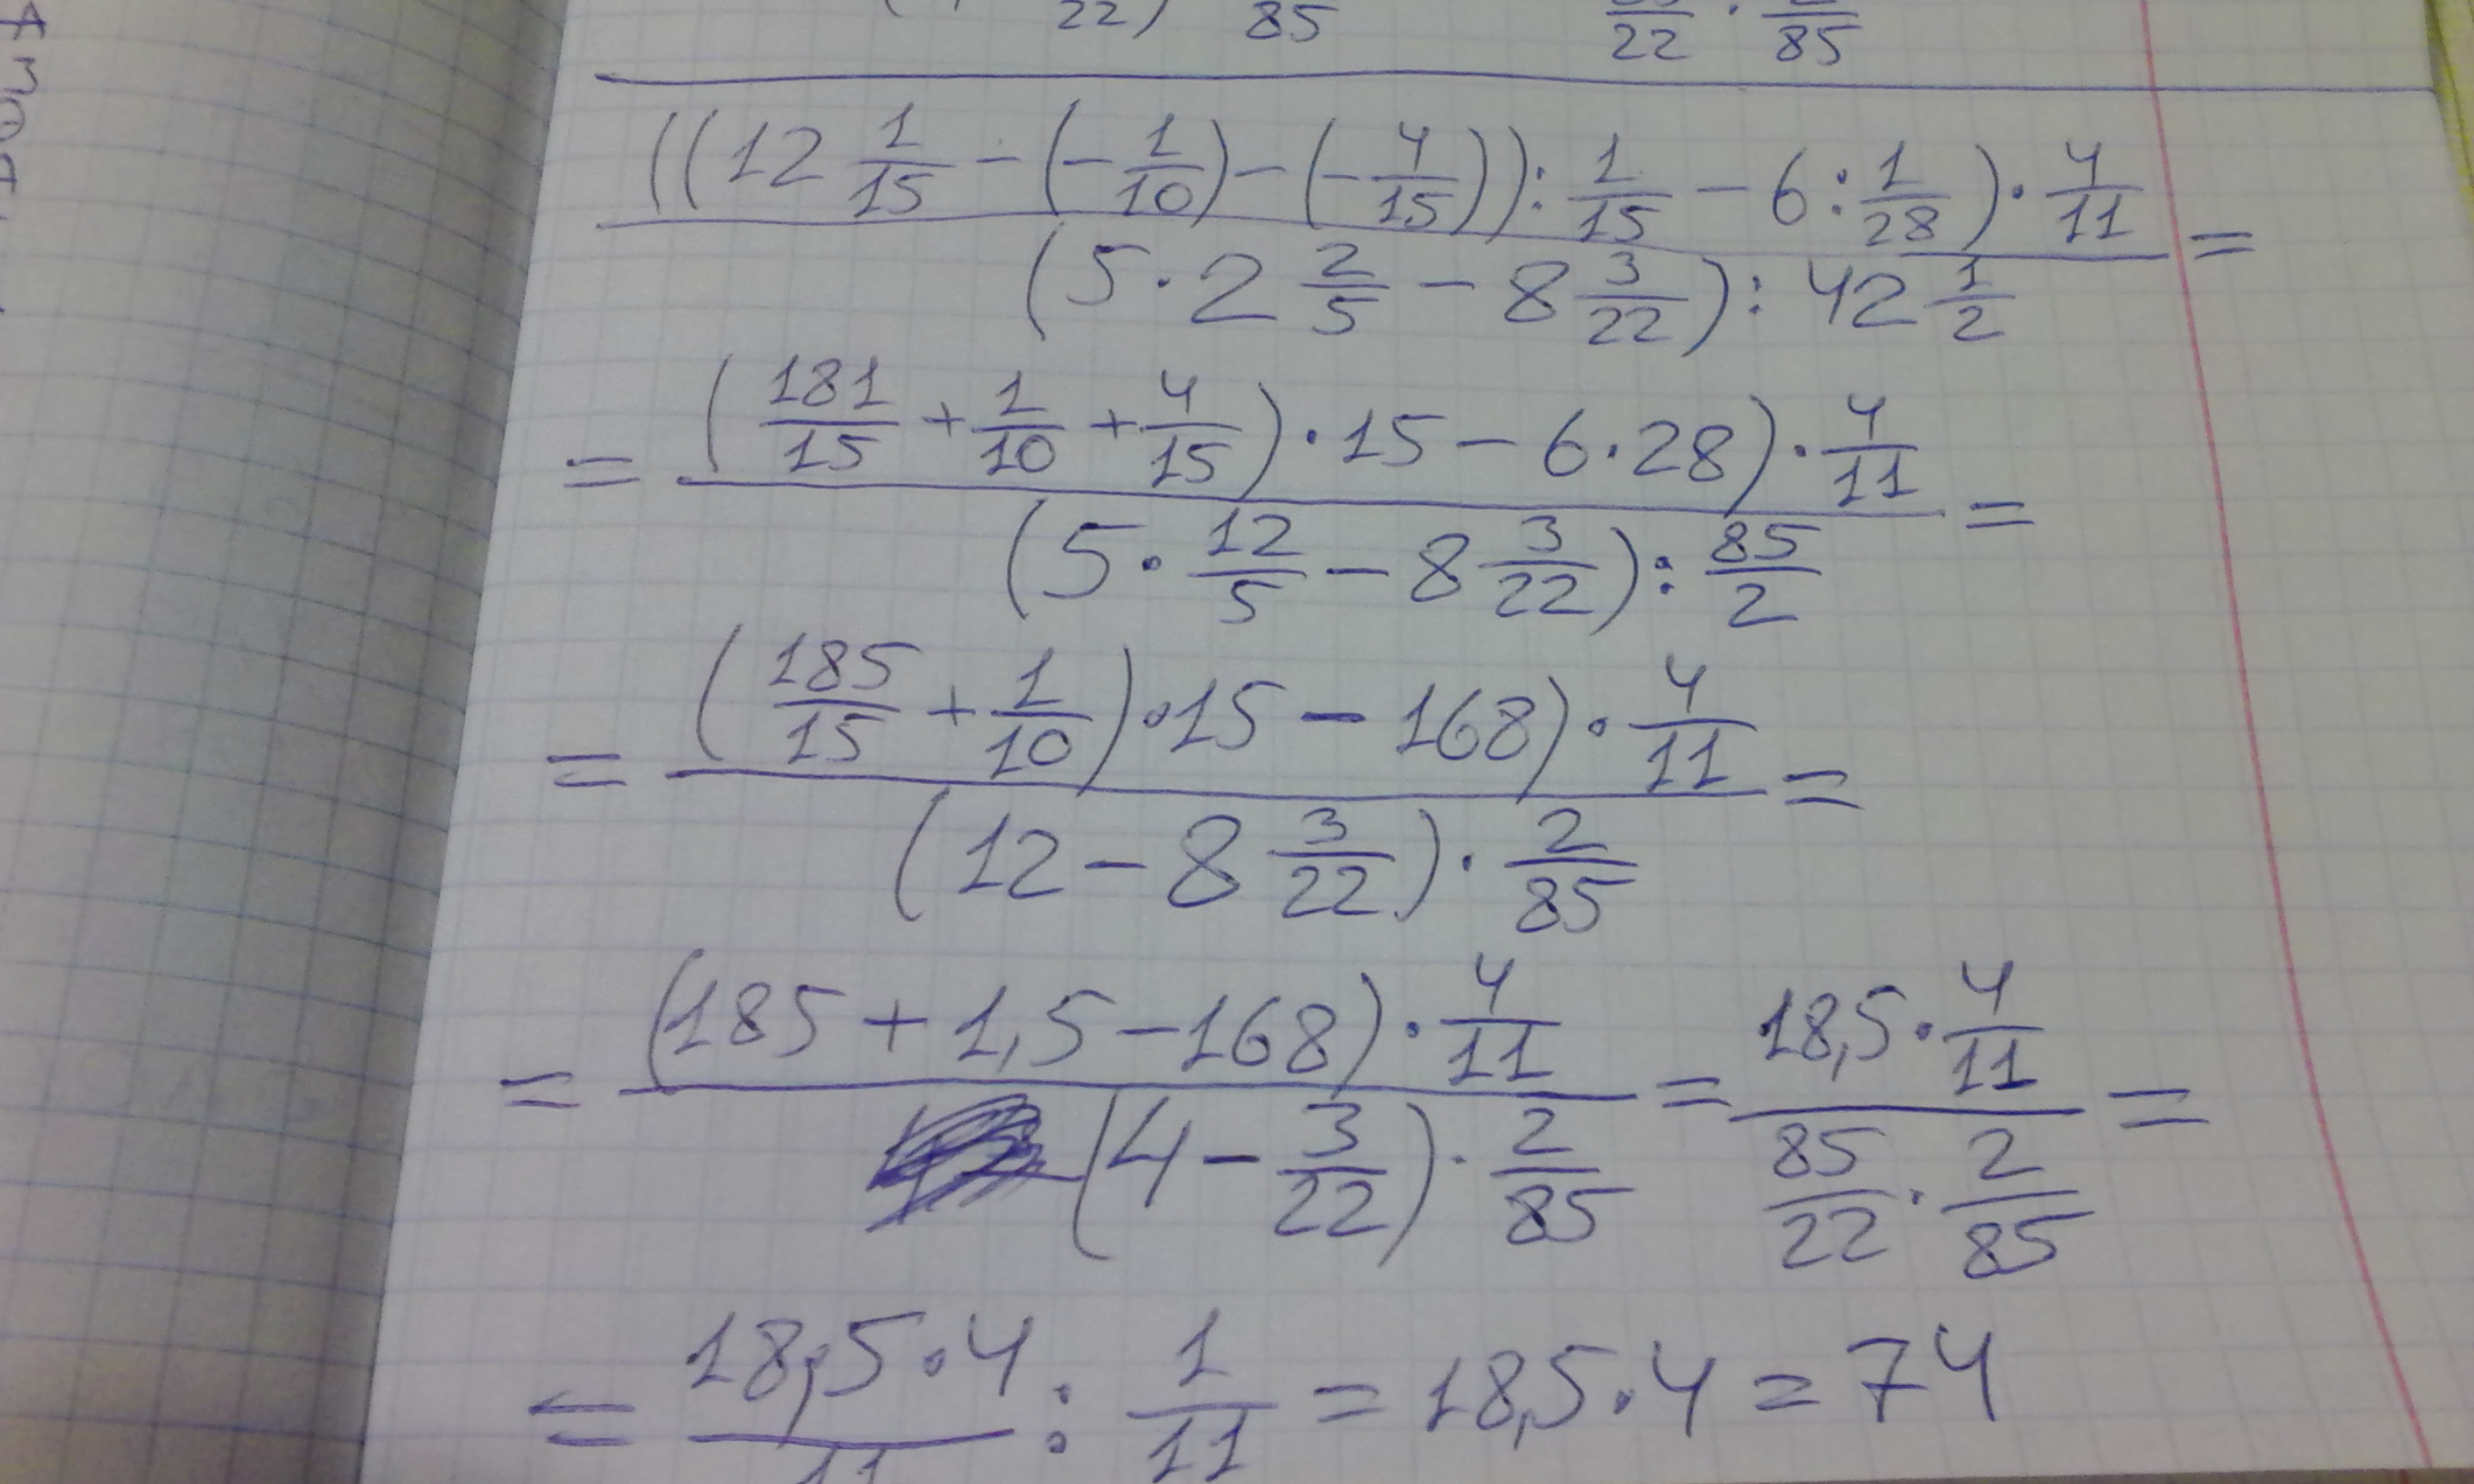 22) 85 22 · 85
((12 1/15 - (-1/10) - (-4/15)) : 1/15 - 6 : 1/28) · 4/11 =
(5 · 2 2/5 - 8 3/22) : 42 1/2
= (181/15 + 1/10 + 4/15) · 15 - 6 · 28) · 4/11 =
(5 · 12/5 - 8 3/22) : 85/2
= (185/15 + 1/10) · 15 - 168) · 4/11 =
(12 - 8 3/22) · 2/85
= (185 + 1,5 - 168) · 4/11 = 18,5 · 4/11 =
(4 - 3/22) · 2/85 85/22 · 2/85
= 18,5 · 4/11 : 1/11 = 18,5 · 4 = 74